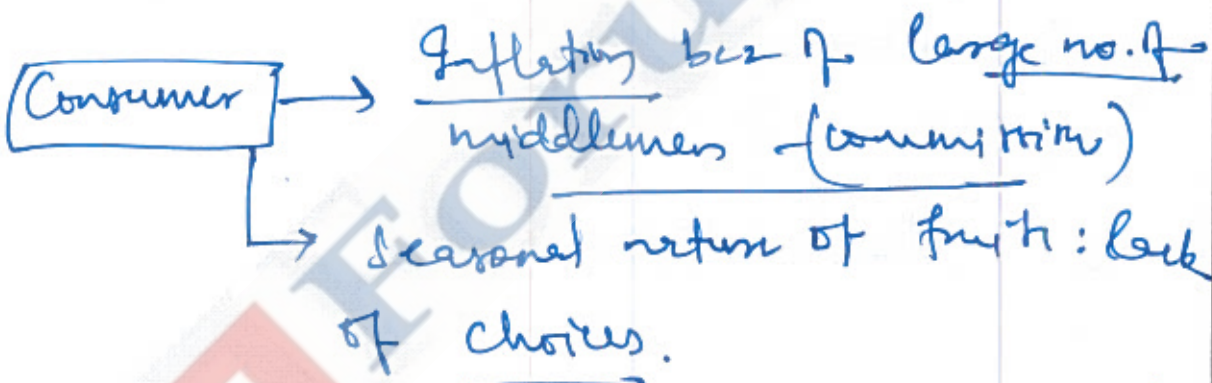 Consumer → Inflation bcz of large no. of
middlemen - (commission)
→ Seasonal nature of fruits : lack
of choices.
Foru